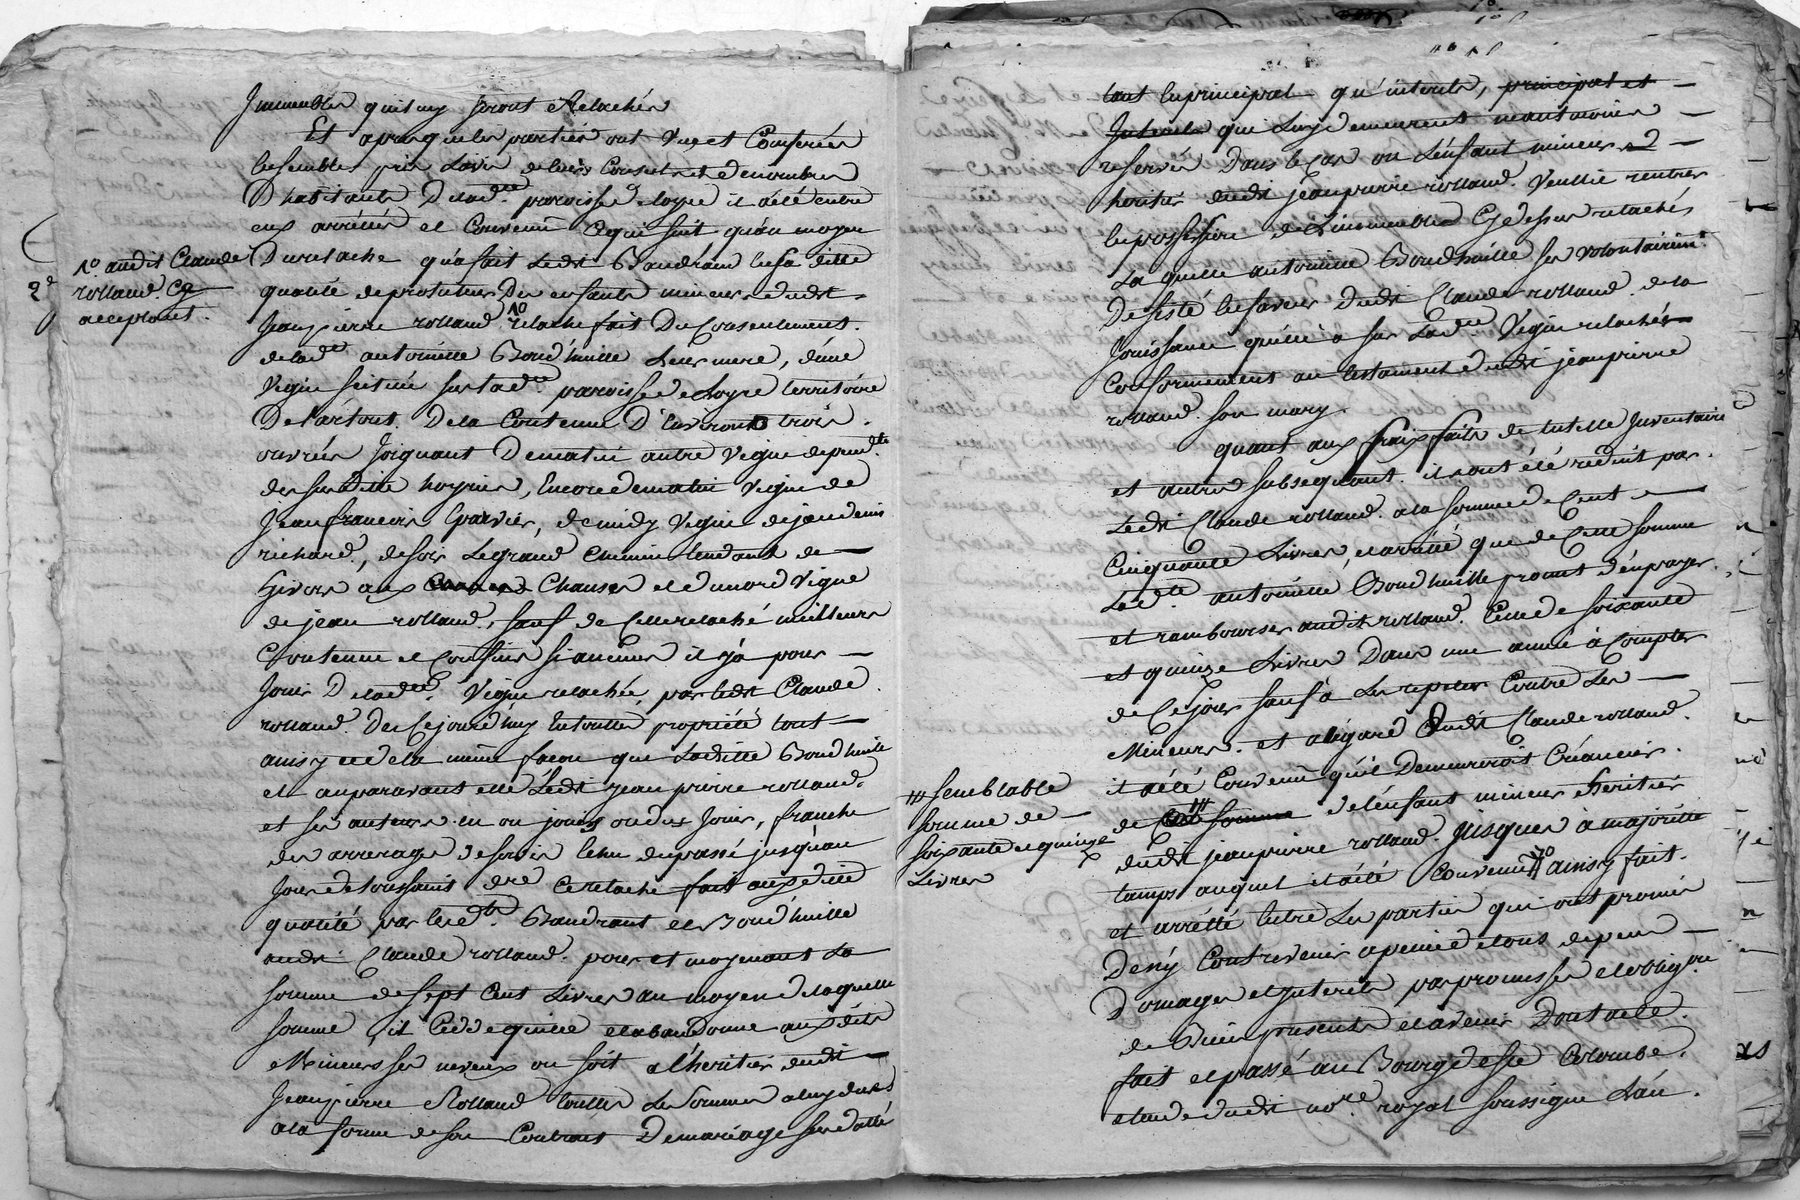 Immeubles quil luy seront Relachés
Et apres que les parties ont vue et Conferées
Ensembles pris Lavis de leurs Conseils et de nombres
D'habitants De lad.te paroisse de loyre il a été entre
eux arrétés et Convenu Ce qui suit qu'au moyen
Du relache qu'a fait Ledit Baudrand En sa ditte
qualité de protuteur Des enfants mineurs dudit
Jeanpierre rolland 1o relache fait Du Consentement
de lad.te antoinette Boud'huille Leur mere, d'une
Vigne scituée sur lad.te paroisse de loyre territoire
De Lartout De la Contenue D'Environ trois
ouvrées Joignant De matin autre Vigne depend.te
de, Encore de matin Vigne de
Jean francois, de midy Vigne de jean denis
richard, de soir Le grand Chemin tendant de
Givors aux Chanses et de nord Vigne
de jean rolland, sauf de Ce relaché meilleurs
Contenue et Confins si aucuns il y a pour
Jouir De lad.te Vigne relachée, par ledit Claude
rolland Des Ce jourd'huy En toutte propriété tout
ainsy et de la même facon que Laditte Boud'huille
et auparavant elle Ledit jean pierre rolland
et ses auteurs en ont jouis ou dus Jouir, franche
des arrerages de servis Echu du passé jusqu'au
Jour de toussaint der.e Ce relache fait auxdittes
qualité par lesd.ts Baudrant et Boud'huille
audit Claude rolland pour et moyenant La
somme de sept Cent Livres au moyen de laquelle
somme, il Cedde quitte et abandonne auxdits
Mineurs ses neveux ou soit a l'heritier dudit
Jeanpierre Rolland touttes Les Sommes a luy dues
a la forme de son Contrat De mariage sus datté
1o audit Claude
rolland cy
acceptant.
2e
tant En principal qu'interets, principal et
Interets qui Luy demeurent neantmoins
reservés Dans le Cas ou L'enfant mineur
heritier dudit jeanpierre rolland Veullie rentrer
En possession de L'immeubles Cy dessus relachés
La quelle antoinette Boud'huille ses volontairem.t
Desisté En faveur dudit Claude rolland de la
Jouissance qu'elle a sur Lad.te Vigne relachée
Conformement au testament dudit jeanpierre
rolland son mary.
quant aux fraix faits de tutelle Inventaire
et autres subsequant ils ont été reduit par
Ledit Claude rolland a la somme de Cent
Cinquante Livres, et arrété que de Cette somme
Lad.te antoinette Boud'huille promet d'en payer
et rembourser audit rolland Celle de soixante
et quinze Livres Dans une année à Compter
de Ce jour sauf à Les repeter Contre Les
Mineurs. et a l'egard dudit Claude rolland
il a été Convenu qu'il Demeureroit Créancier
de Cette somme de l'enfant mineur heritier
dudit jeanpierre rolland Jusques à majorité
temps auquel il a été Convenu ainsy fait
et arrétté Entre Les parties qui ont promis
De n'y Contrevenir a peine de tous depens
Domages et Interets par promesses et oblig.on
de Biens presents et avenir Dont acte
fait et passé au Bourg de S.te Colombe
etude dudit no.re royal soussigné L'an
/// semblable
somme de
soixante et quinze
Livres